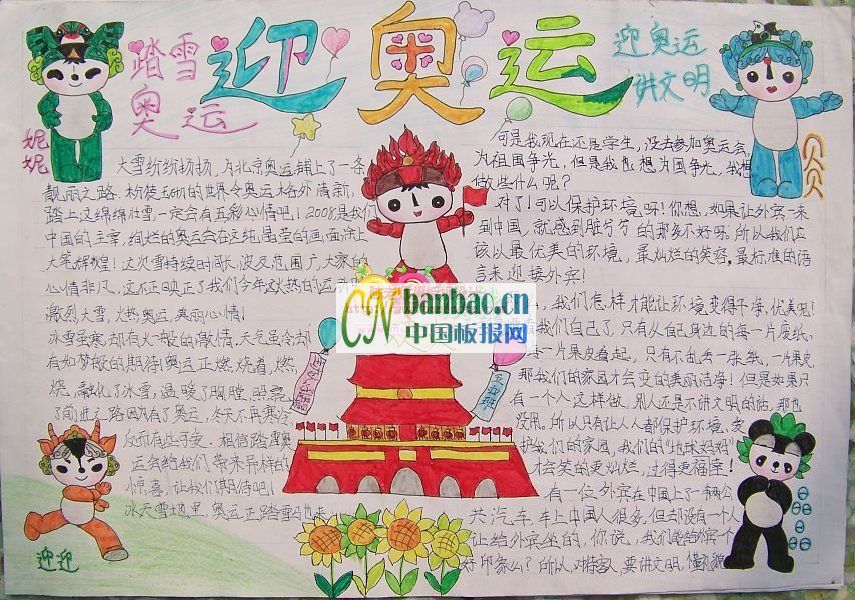 迎奥运
踏雪
奥运
迎奥运
讲文明
妮妮
贝贝
大雪纷纷扬扬,为北京奥运铺上了一条
靓丽之路.粉装玉砌的世界令奥运格外清新,
踏上这绵绵壮雪,一定会有五彩心情吧!2008是我们
中国的主宰,绚烂的奥运会在这纯晶莹的画面涂上
大笔辉煌!这次雪持续时间长,波及范围广,大家的
心情非凡,这不正映正了我们今年这火热的运
激烈大雪,火热奥运,美丽心情!
冰雪虽寒,却有火一般的激情,天气虽冷却
有如梦般的期待!奥运正燃烧着,燃
烧,融化了冰雪,温暖了胸膛,照亮
了前进之路因为有了奥运,冬天不再寒冷
反而有些寻变.相信踏雪奥
运会给我们带来异样的
惊喜,让我们期待吧!
冰天雪地里,奥运正踏雪
可是我现在还是学生,没去参加奥运会,
为祖国争光,但是我也想为国争光,我想
做些什么呢?
对了!可以保护环境呀!你想,如果让外宾一来
到中国,就感到脏兮兮的那多不好呀。所以我们应
该以最优美的环境,最灿烂的笑容,最标准的语
言来迎接外宾!
,我们怎样才能让环境变得干净,优美呢!
我们自己了,只有从自己身边的每一片废纸,
每一片果皮看起,只有不乱丢一张纸,一片果皮
那我们的家园才会变的美丽洁净!但是如果只
有一个人这样做,别人还是不讲文明的话,那也
没用。所以只有让人人都保护环境,爱
护我们的家园,我们的“地球妈妈”
才会笑的更灿烂,过得更福幸!
有一位外宾在中国上了一辆公
共汽车,车上中国人很多,但却没有一个人
让给外宾坐的,你说,我们能给外宾个
好印象么?所以,对待客人,要讲文明,懂礼貌
CN banbao.cn
中国板报网
五
班
迎迎